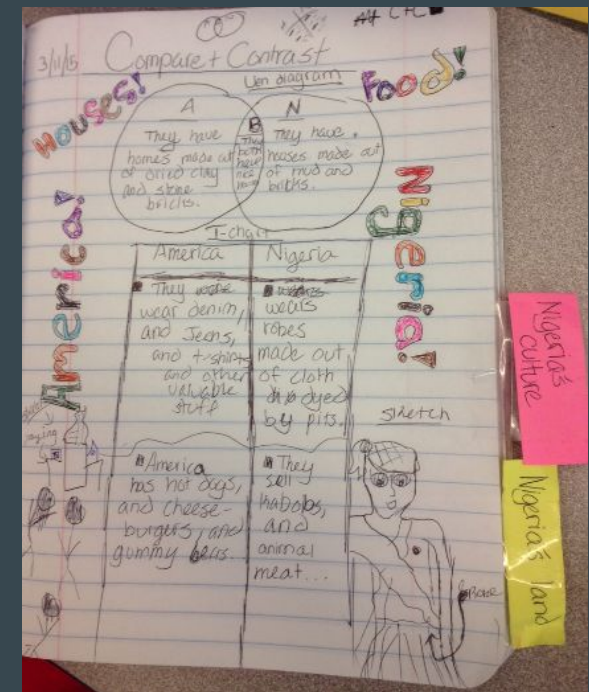 3/11/15
Compare + Contrast
Ven diagram
Houses!
Food!
A
They have
homes made out
of dried clay
and stone
bricks.
B
They
both
have
nice
N
They have
houses made out
of mud and
bricks.
America!
Nigeria!
T-chart
America
They
wear denim,
and Jeans,
and t-shirts
and other
valuable
stuff
Nigeria
wears
robes
made out
of cloth
dyed
by pits.
America
has hot dogs,
and cheese-
burgers, and
gummy bears.
They
sell
kabobs,
and
animal
meat...
Sketch
Robe
Nigeria's
culture
Nigeria's land